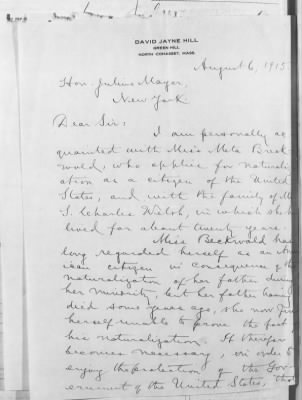 DAVID JAYNE HILL
GREEN HILL
NORTH COHASSET, MASS.
August 6, 1915
Hon. Julius Mayer,
New York
Dear Sir:
I am personally ac
quainted with Miss Meta Beck
wald, who applies for naturali
ation as a citizen of the United
States, and with the family of M
S. Charles Welsh, in which she h
lived for about twenty years.
Miss Beckwald has
long regarded herself as an Am
ican citizen in consequence of the
naturalization of her father during
her minority, but her father having
died some years ago, she now fin
herself unable to prove the fact
his naturalization. It therefor
becomes necessary, in order to
enjoy the protection of the Gov-
ernment of the United States, tha